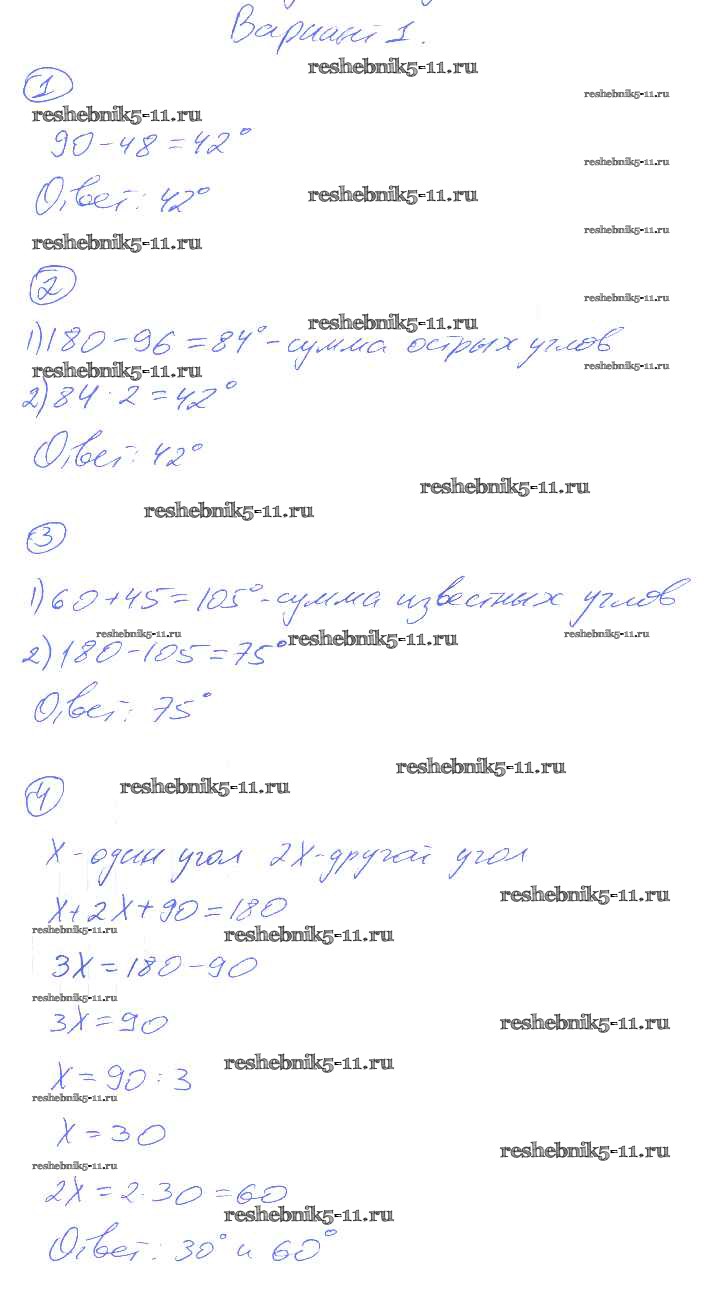 Вариант 1.
reshebnik5-11.ru
① reshebnik5-11.ru
reshebnik5-11.ru
90-48=42°
reshebnik5-11.ru
Ответ: 42° reshebnik5-11.ru
reshebnik5-11.ru
reshebnik5-11.ru
②
reshebnik5-11.ru
reshebnik5-11.ru
1) 180-96=84°-сумма острых углов
reshebnik5-11.ru reshebnik5-11.ru
2) 84:2=42°
Ответ: 42°
reshebnik5-11.ru
reshebnik5-11.ru
③
1) 60+45=105°-сумма известных углов
reshebnik5-11.ru reshebnik5-11.ru reshebnik5-11.ru
2) 180-105=75°
Ответ: 75°
reshebnik5-11.ru
④ reshebnik5-11.ru
х-один угол 2х-другой угол
reshebnik5-11.ru
х+2х+90=180
reshebnik5-11.ru reshebnik5-11.ru
3х=180-90
reshebnik5-11.ru
3х=90 reshebnik5-11.ru
reshebnik5-11.ru
х=90:3
reshebnik5-11.ru
х=30
reshebnik5-11.ru
reshebnik5-11.ru
2х=2·30=60
reshebnik5-11.ru
Ответ: 30° и 60°